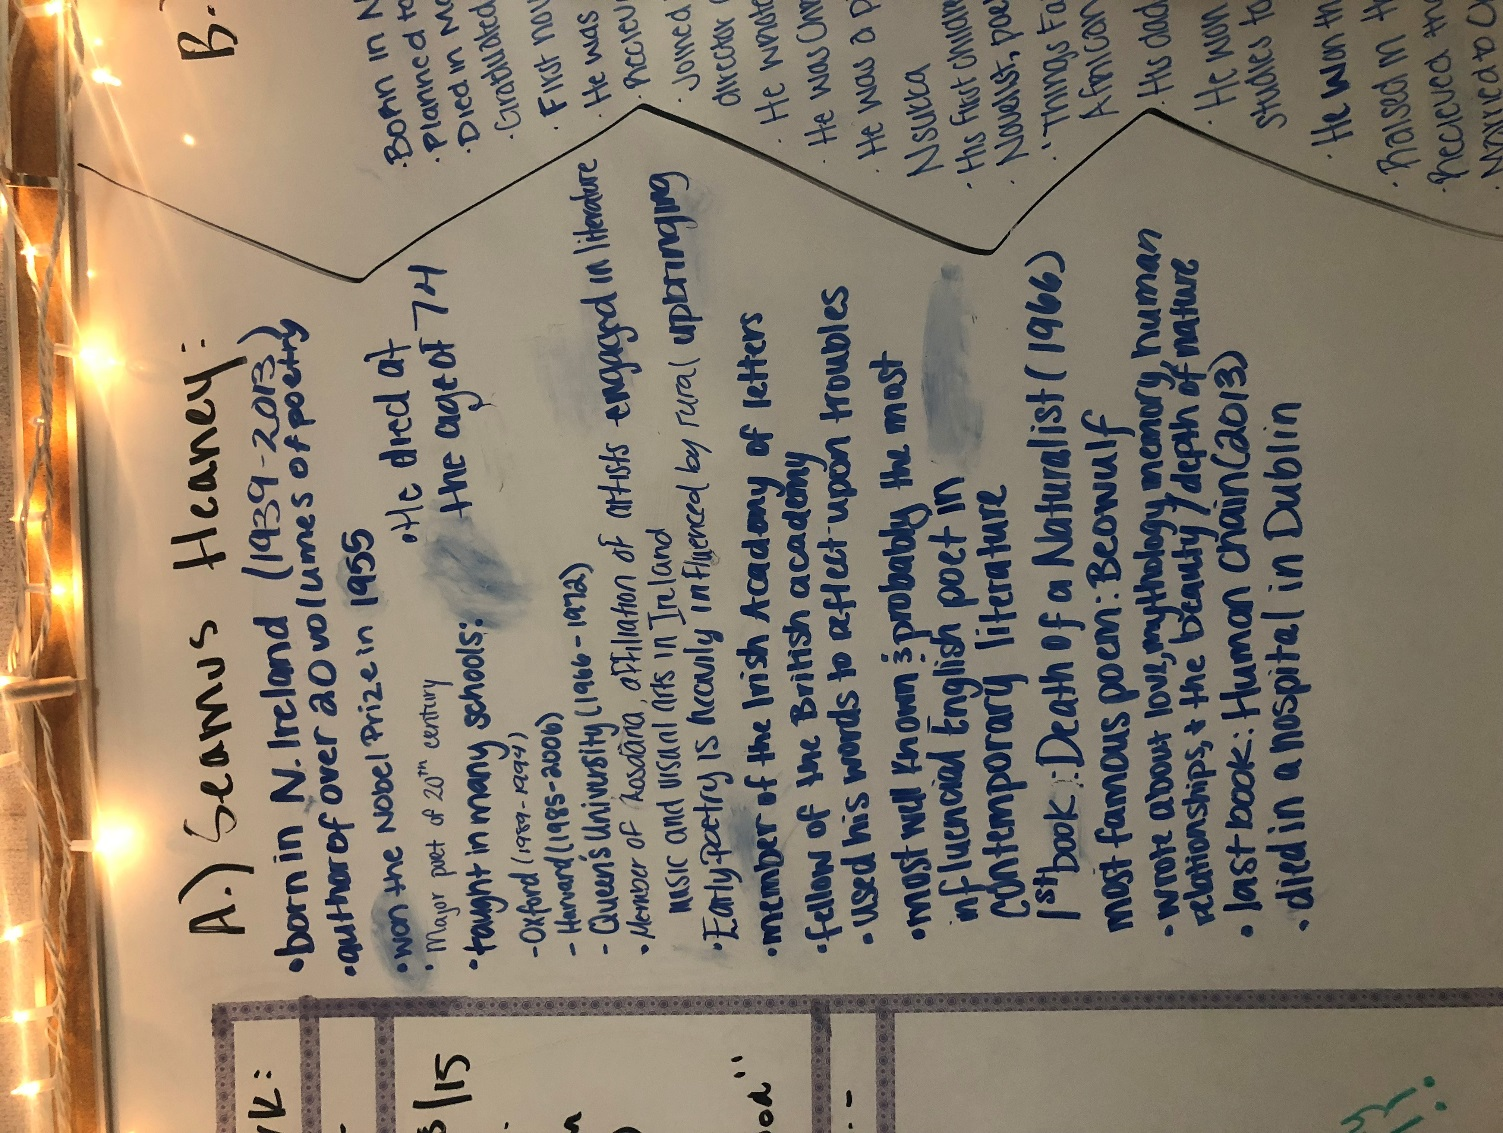 A.) Seamus Heaney:
• born in N. Ireland (1939-2013)
• author of over 20 volumes of poetry
• won the Nobel Prize in 1955
• He died at
the age of 74
• Major poet of 20th century
• taught in many schools:
- Oxford (1989-1994)
- Harvard (1985-2006)
- Queen's University (1966-1972)
• Member of Aosdána, affiliation of artists engaged in literature
music and visual arts in Ireland
• Early poetry is heavily influenced by rural upbringing
• member of the Irish Academy of letters
• fellow of the British academy
• used his words to reflect upon troubles
• most well known as probably the most
influencial English poet in
contemporary literature
1st book: Death of a Naturalist (1966)
most famous poem: Beowulf
• wrote about love, mythology, memory, human
relationships, + the beauty/depth of nature
• last book: Human chain (2013)
• died in a hospital in Dublin
B.
• Born in N
• Planned to
• Died in Ma
• Graduated
• First nov
• He was
Reciev
• Joined
director
• He wrote
• He was Chr
• He was a p
Nsukka
• His first
Novelist, poe
• Things Fa
African
• His dad
• He won
studies to
• He won th
• Raised in th
Recieved the
• Married to Ch
K:
/15
ood"